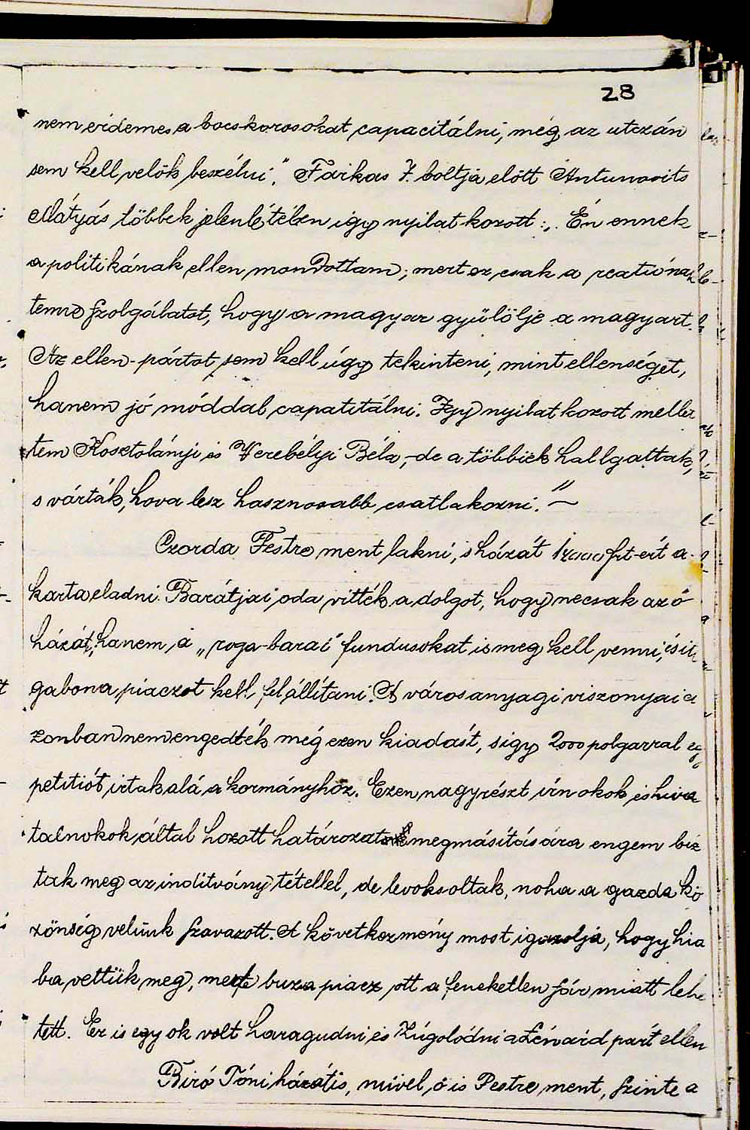 28
nem érdemes a bocskorosokat capacitálni, még az utczán
sem kell velök beszélni." Farkas I. boltja előtt Antunovits
Mátyás többek jelenlétében így nyilatkozott: „Én ennek
a politikának ellen mondottam; mert ez csak a reactiónak
tenne szolgálatot, hogy a magyar gyűlölje a magyart.
Az ellen-pártot sem kell úgy tekinteni, mint ellenséget,
hanem jó móddal capatitálni. Igy nyilatkozott mellet
tem Kosztolányi és Verebélyi Béla, de a többiek hallgattak,
s várták, hova lesz hasznosabb csatlakozni."
Czorda Pestre ment lakni, s házát frt-ért a-
karta eladni. Barátjai oda vitték a dolgot, hogy necsak az ő
házát, hanem a „roga-barai" fundusokat is meg kell venni, és itt
gabona piaczot kell felállítani. A város anyagi viszonyai a
zonban nem engedték még ezen kiadást, s így 2000 polgárral egy
petitiót irtak alá a kormányhoz. Ezen, nagyrészt irnokok és hiva
talnokok által hozott határozat megmásítására engem bíz
tak meg az inditvány tétellel, de levoksoltak, noha a gazda kö
zönség velünk szavazott. A következmény most igazolja, hogy hia
ba vettük meg, mert buza piacz ott a feneketlen sár miatt lehe
tett. Ez is egy ok volt haragudni és zúgolódni a Lénárd párt ellen
Biró Tóni házát is, mivel ő is Pestre ment, szinte a